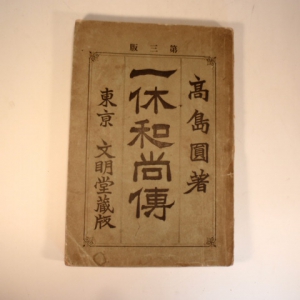 第三版
高島圓著
一休和尚傳
東京 文明堂蔵版